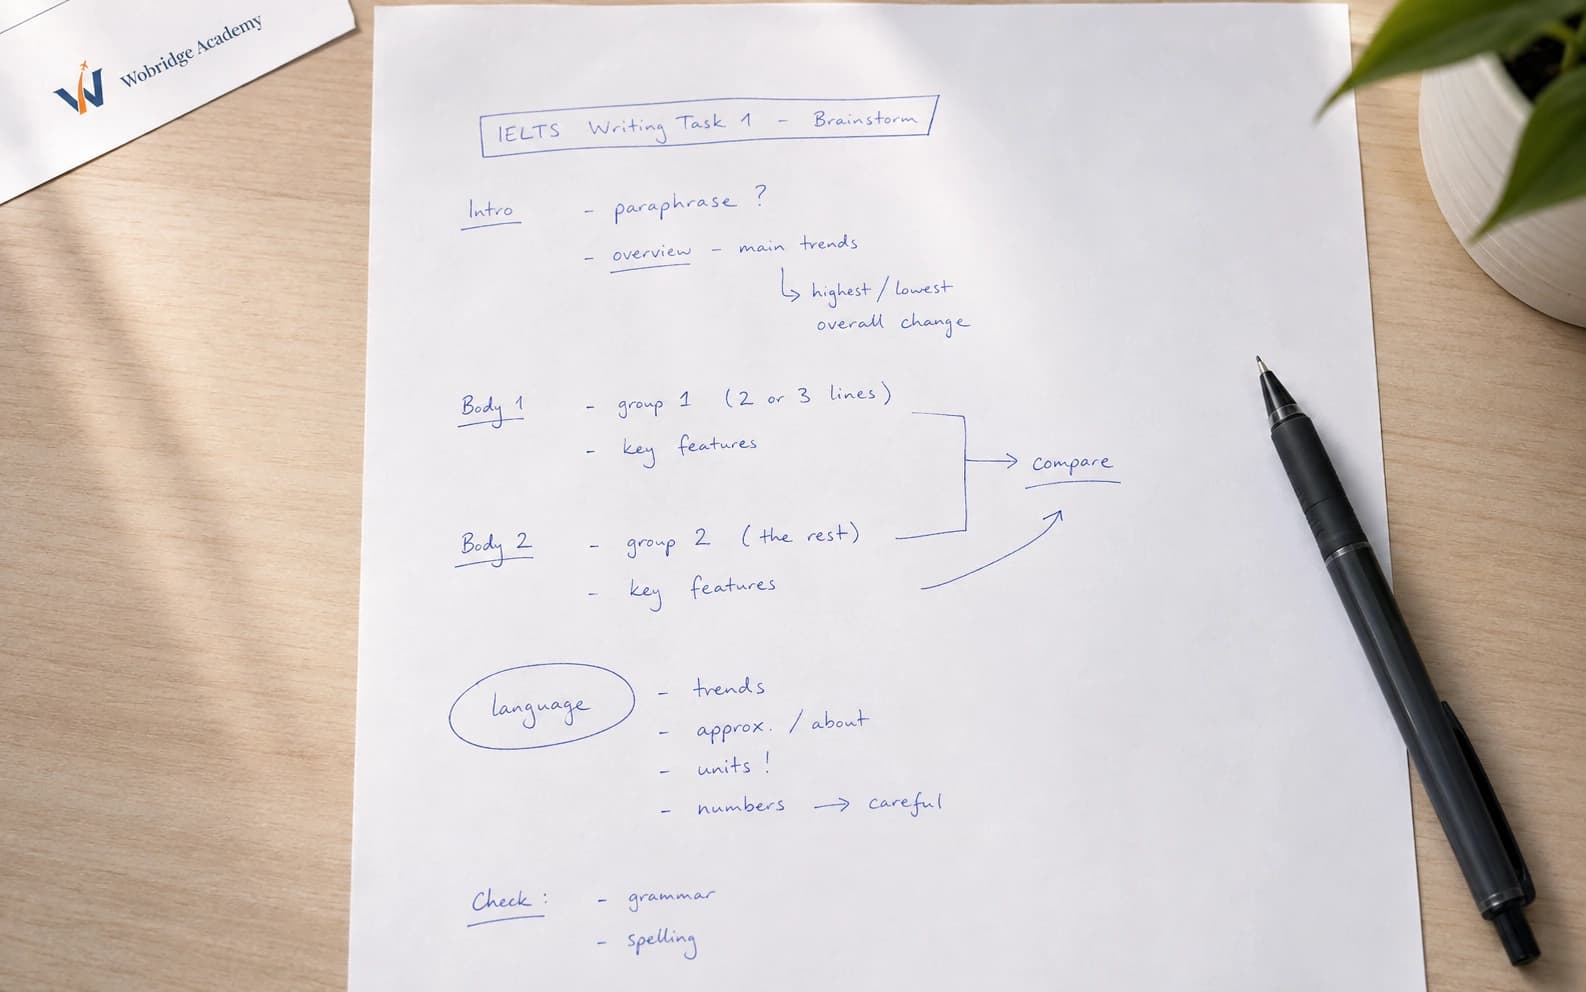 Wobridge Academy
IELTS Writing Task 1 - Brainstorm
Intro - paraphrase ?
- overview - main trends
↳ highest / lowest
overall change
Body 1 - group 1 (2 or 3 lines)
- key features
→ compare
Body 2 - group 2 (the rest)
- key features
language
- trends
- approx. / about
- units !
- numbers → careful
Check : - grammar
- spelling